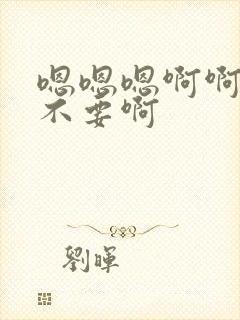 嗯嗯嗯啊啊
不要啊
劉暉